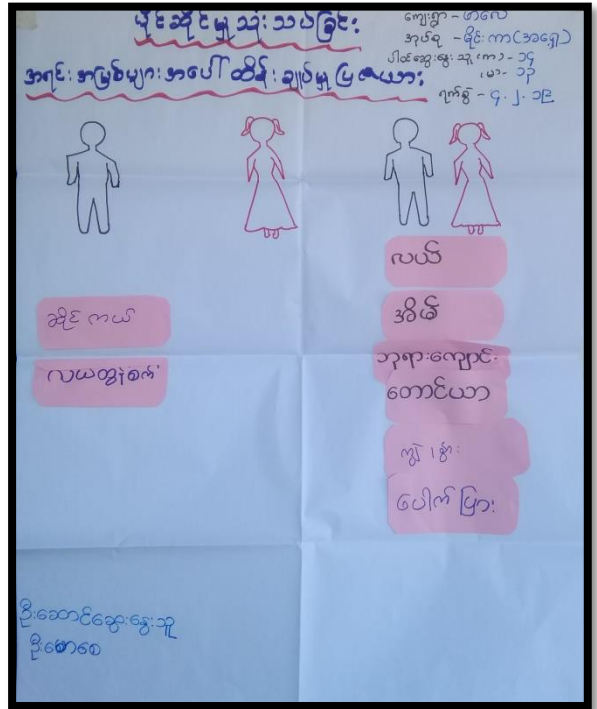 ပိုင်ဆိုင်မှု သုံးသပ်ခြင်း
အရင်းအမြစ်များအပေါ် ထိန်းချုပ်မှုပြဇယား
ကျေးရွာ - ဖာလေ
အုပ်စု - မိုင်းကာ (အရှေ့)
ပါဝင်ဆွေးနွေးသူ (ကာ) - ၁၄
(မ) - ၁၃
ရက်စွဲ - ၄.၂.၁၉
ဆိုင်ကယ်
လယထွန်စက်
လယ်
အိမ်
ဘုရားကျောင်း
တောင်ယာ
ကျွဲ၊ နွား
ပေါက်ပြား
ဦးဆောင်ဆွေးနွေးသူ